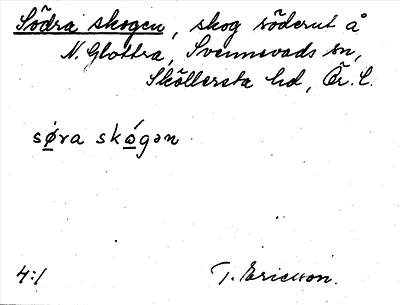 Södra skogen, skog söderut å
N. Glottra, Svennevads sn,
Sköllersta hd, Ör. l.
sø̱ra skó̱gən
4:1 T. Ericsson.